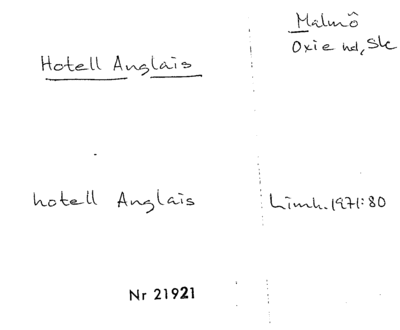 Malmö
Oxie hd, Sk
Hotell Anglais
hotell Anglais
Limh. 1971:80
Nr 21921